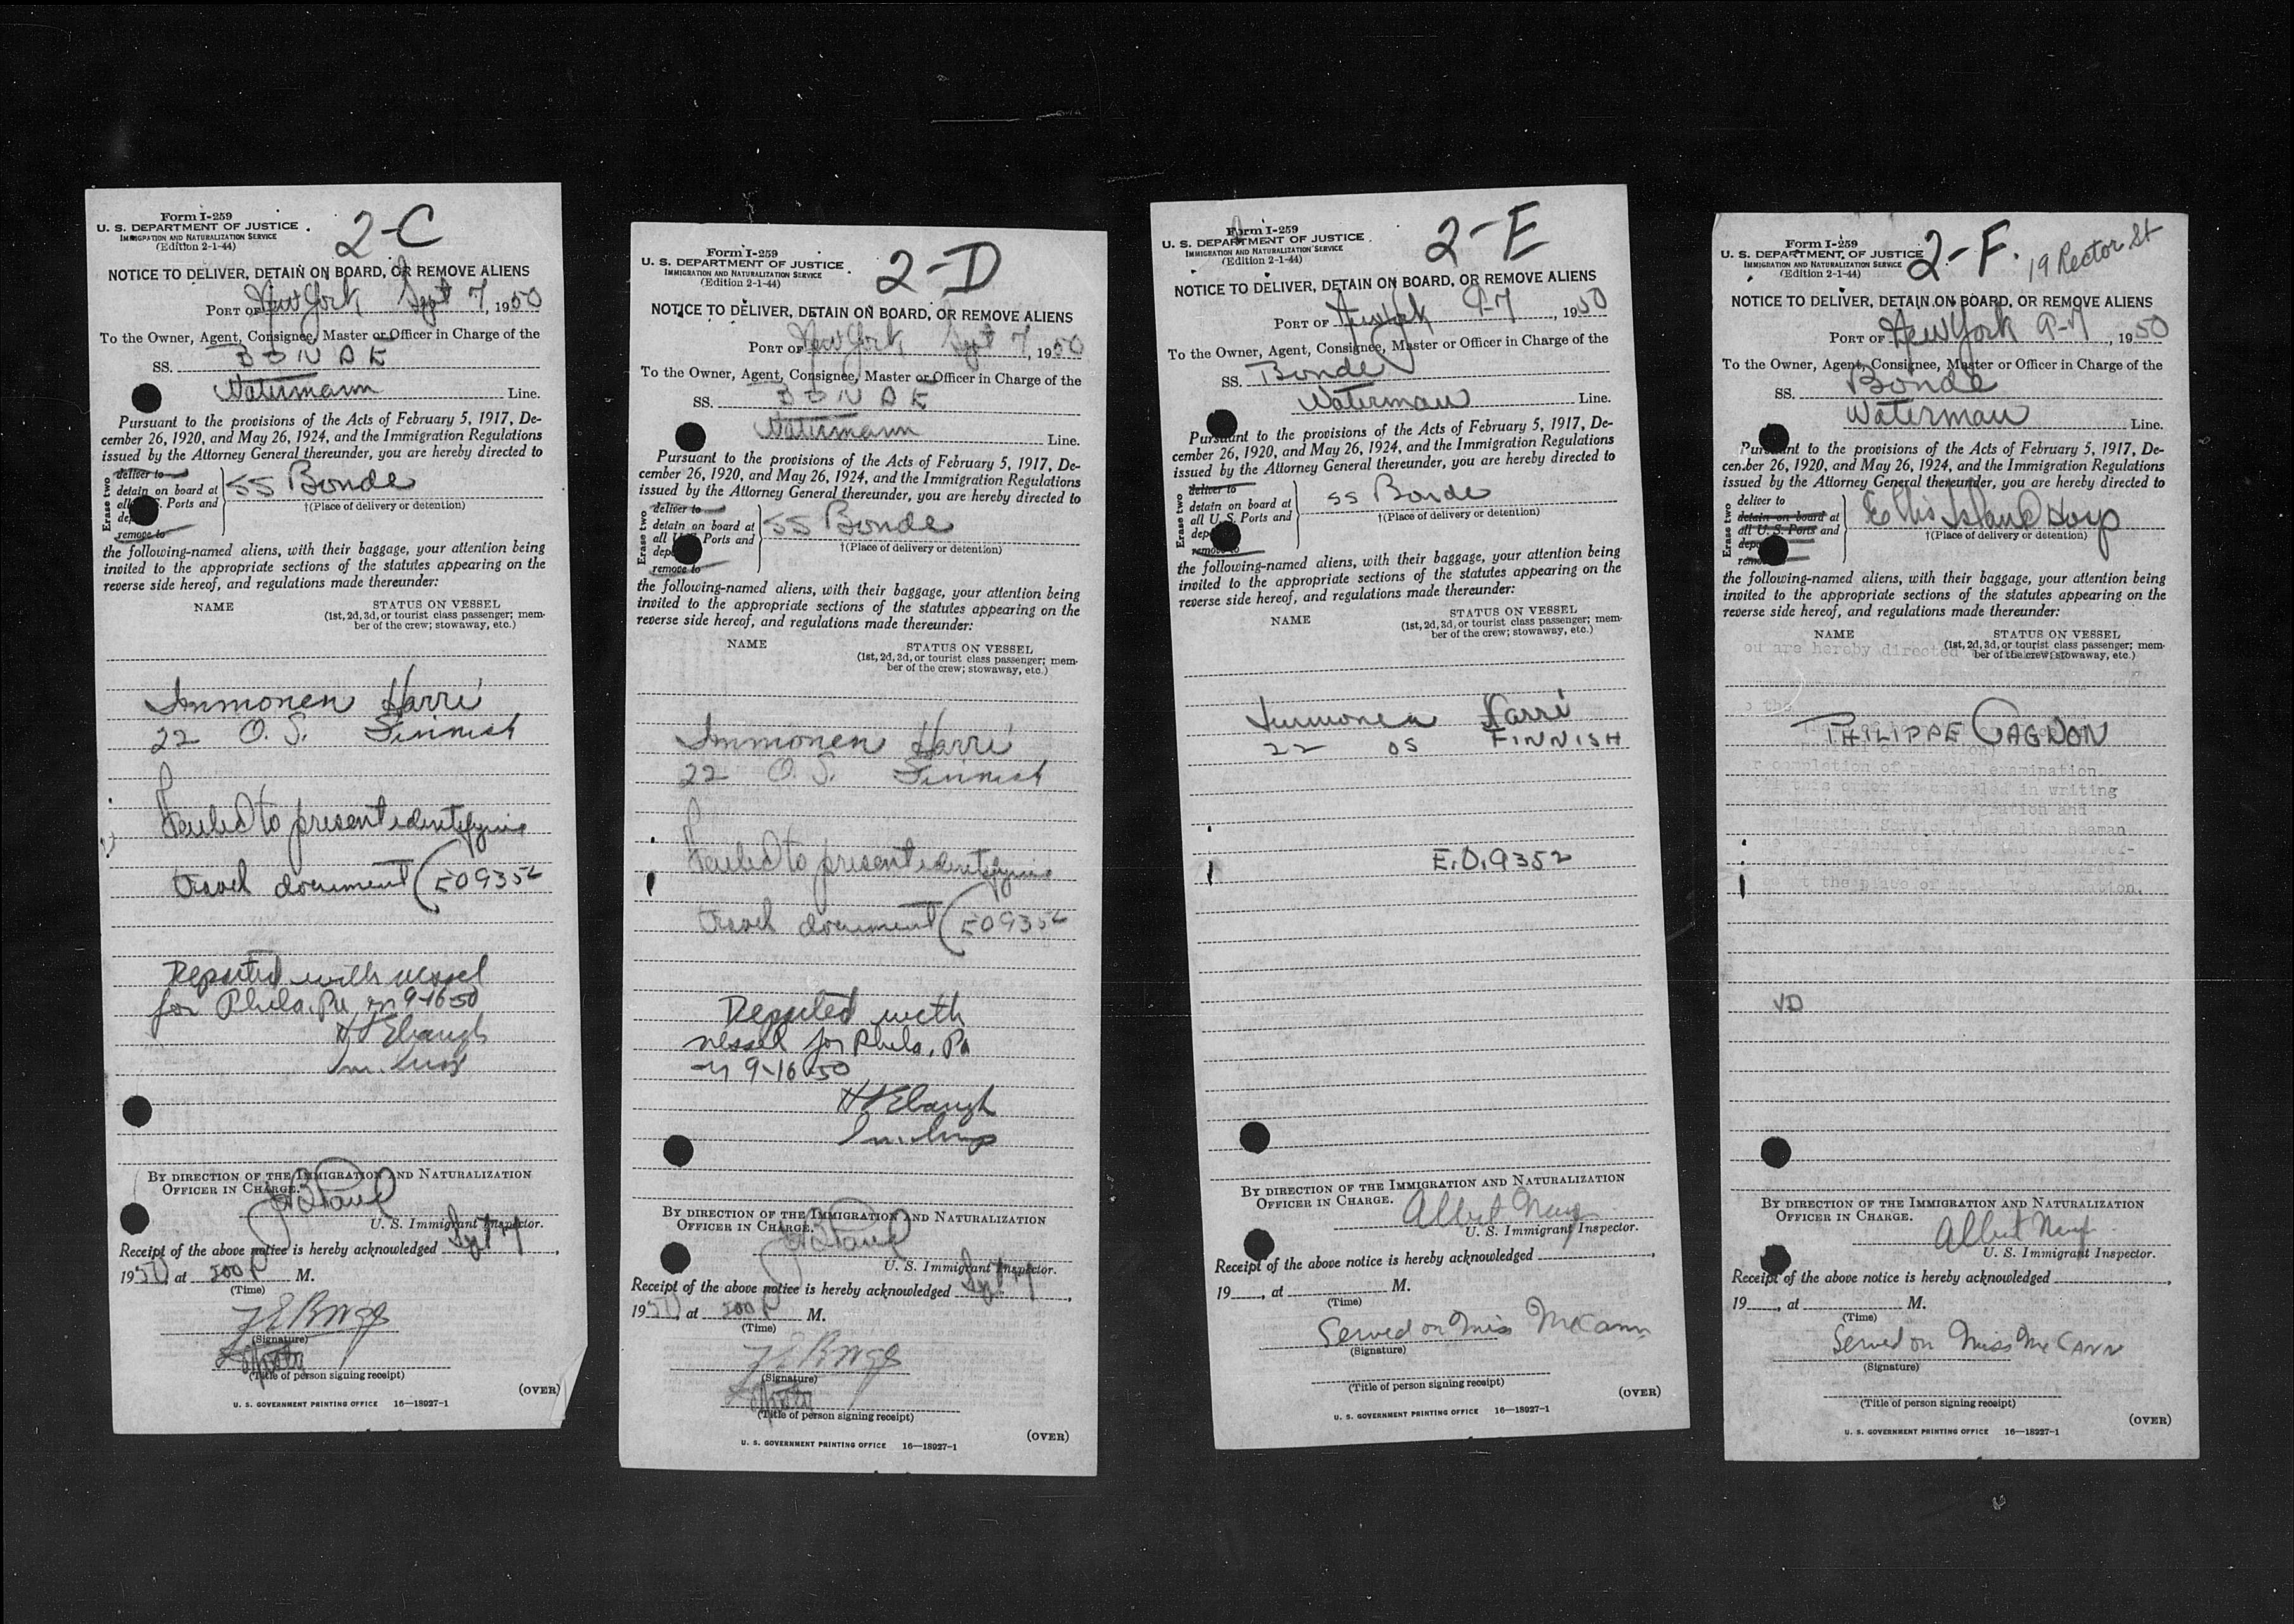 Form I-259
U. S. DEPARTMENT OF JUSTICE
IMMIGRATION AND NATURALIZATION SERVICE
(Edition 2-1-44)
2-C
NOTICE TO DELIVER, DETAIN ON BOARD, OR REMOVE ALIENS
PORT OF New York Sept 7, 1950
To the Owner, Agent, Consignee, Master or Officer in Charge of the
SS. BONDE
Watermann Line.
Pursuant to the provisions of the Acts of February 5, 1917, De-
cember 26, 1920, and May 26, 1924, and the Immigration Regulations
issued by the Attorney General thereunder, you are hereby directed to
Erase two
deliver to
detain on board at
all U. S. Ports and
remove to
SS Bonde
†(Place of delivery or detention)
the following-named aliens, with their baggage, your attention being
invited to the appropriate sections of the statutes appearing on the
reverse side hereof, and regulations made thereunder:
NAME STATUS ON VESSEL
(1st, 2d, 3d, or tourist class passenger; mem-
ber of the crew; stowaway, etc.)
Immonen Harri
22 O. S. Finnish
Failed to present identifying
travel document (EO 9352
Departed with vessel
for Phila. Pa on 9-16-50
H Ebaugh
Im. Insp
BY DIRECTION OF THE IMMIGRATION AND NATURALIZATION
OFFICER IN CHARGE.
U. S. Immigrant Inspector.
Receipt of the above notice is hereby acknowledged Sept 7,
1950, at 200 P M.
(Time)
(Signature)
(Title of person signing receipt)
(OVER)
U. S. GOVERNMENT PRINTING OFFICE 16—18927-1
Form I-259
U. S. DEPARTMENT OF JUSTICE
IMMIGRATION AND NATURALIZATION SERVICE
(Edition 2-1-44)
2-D
NOTICE TO DELIVER, DETAIN ON BOARD, OR REMOVE ALIENS
PORT OF New York Sept 7, 1950
To the Owner, Agent, Consignee, Master or Officer in Charge of the
SS. BONDE
Watermann Line.
Pursuant to the provisions of the Acts of February 5, 1917, De-
cember 26, 1920, and May 26, 1924, and the Immigration Regulations
issued by the Attorney General thereunder, you are hereby directed to
Erase two
deliver to
detain on board at
all U. S. Ports and
remove to
SS Bonde
†(Place of delivery or detention)
the following-named aliens, with their baggage, your attention being
invited to the appropriate sections of the statutes appearing on the
reverse side hereof, and regulations made thereunder:
NAME STATUS ON VESSEL
(1st, 2d, 3d, or tourist class passenger; mem-
ber of the crew; stowaway, etc.)
Immonen Harri
22 O. S. Finnish
Failed to present identifying
travel document (EO 9352
Departed with
vessel for Phila. Pa
on 9-16-50
H Ebaugh
Im. Insp
BY DIRECTION OF THE IMMIGRATION AND NATURALIZATION
OFFICER IN CHARGE.
U. S. Immigrant Inspector.
Receipt of the above notice is hereby acknowledged Sept 7,
1950, at 200 P M.
(Time)
(Signature)
(Title of person signing receipt)
(OVER)
U. S. GOVERNMENT PRINTING OFFICE 16—18927-1
Form I-259
U. S. DEPARTMENT OF JUSTICE
IMMIGRATION AND NATURALIZATION SERVICE
(Edition 2-1-44)
2-E
NOTICE TO DELIVER, DETAIN ON BOARD, OR REMOVE ALIENS
PORT OF New York 9-7, 1950
To the Owner, Agent, Consignee, Master or Officer in Charge of the
SS. Bonde
Waterman Line.
Pursuant to the provisions of the Acts of February 5, 1917, De-
cember 26, 1920, and May 26, 1924, and the Immigration Regulations
issued by the Attorney General thereunder, you are hereby directed to
Erase two
deliver to
detain on board at
all U. S. Ports and
remove to
SS Bonde
†(Place of delivery or detention)
the following-named aliens, with their baggage, your attention being
invited to the appropriate sections of the statutes appearing on the
reverse side hereof, and regulations made thereunder:
NAME STATUS ON VESSEL
(1st, 2d, 3d, or tourist class passenger; mem-
ber of the crew; stowaway, etc.)
Immonen Harri
22 OS FINNISH
E.O. 9352
BY DIRECTION OF THE IMMIGRATION AND NATURALIZATION
OFFICER IN CHARGE.
Albert
U. S. Immigrant Inspector.
Receipt of the above notice is hereby acknowledged
19 , at M.
(Time)
Served on Miss McCann
(Signature)
(Title of person signing receipt)
(OVER)
U. S. GOVERNMENT PRINTING OFFICE 16—18927-1
Form I-259
U. S. DEPARTMENT OF JUSTICE
IMMIGRATION AND NATURALIZATION SERVICE
(Edition 2-1-44)
2-F. 19 Rector St
NOTICE TO DELIVER, DETAIN ON BOARD, OR REMOVE ALIENS
PORT OF New York 9-7, 1950
To the Owner, Agent, Consignee, Master or Officer in Charge of the
SS. Bonde
Waterman Line.
Pursuant to the provisions of the Acts of February 5, 1917, De-
cember 26, 1920, and May 26, 1924, and the Immigration Regulations
issued by the Attorney General thereunder, you are hereby directed to
Erase two
deliver to
detain on board at
all U. S. Ports and
Ellis Island Hosp
†(Place of delivery or detention)
the following-named aliens, with their baggage, your attention being
invited to the appropriate sections of the statutes appearing on the
reverse side hereof, and regulations made thereunder:
NAME STATUS ON VESSEL
(1st, 2d, 3d, or tourist class passenger; mem-
ber of the crew; stowaway, etc.)
PHILIPPE GAGNON
VD
BY DIRECTION OF THE IMMIGRATION AND NATURALIZATION
OFFICER IN CHARGE.
Albert
U. S. Immigrant Inspector.
Receipt of the above notice is hereby acknowledged
19 , at M.
(Time)
Served on Miss McCann
(Signature)
(Title of person signing receipt)
(OVER)
U. S. GOVERNMENT PRINTING OFFICE 16—18927-1